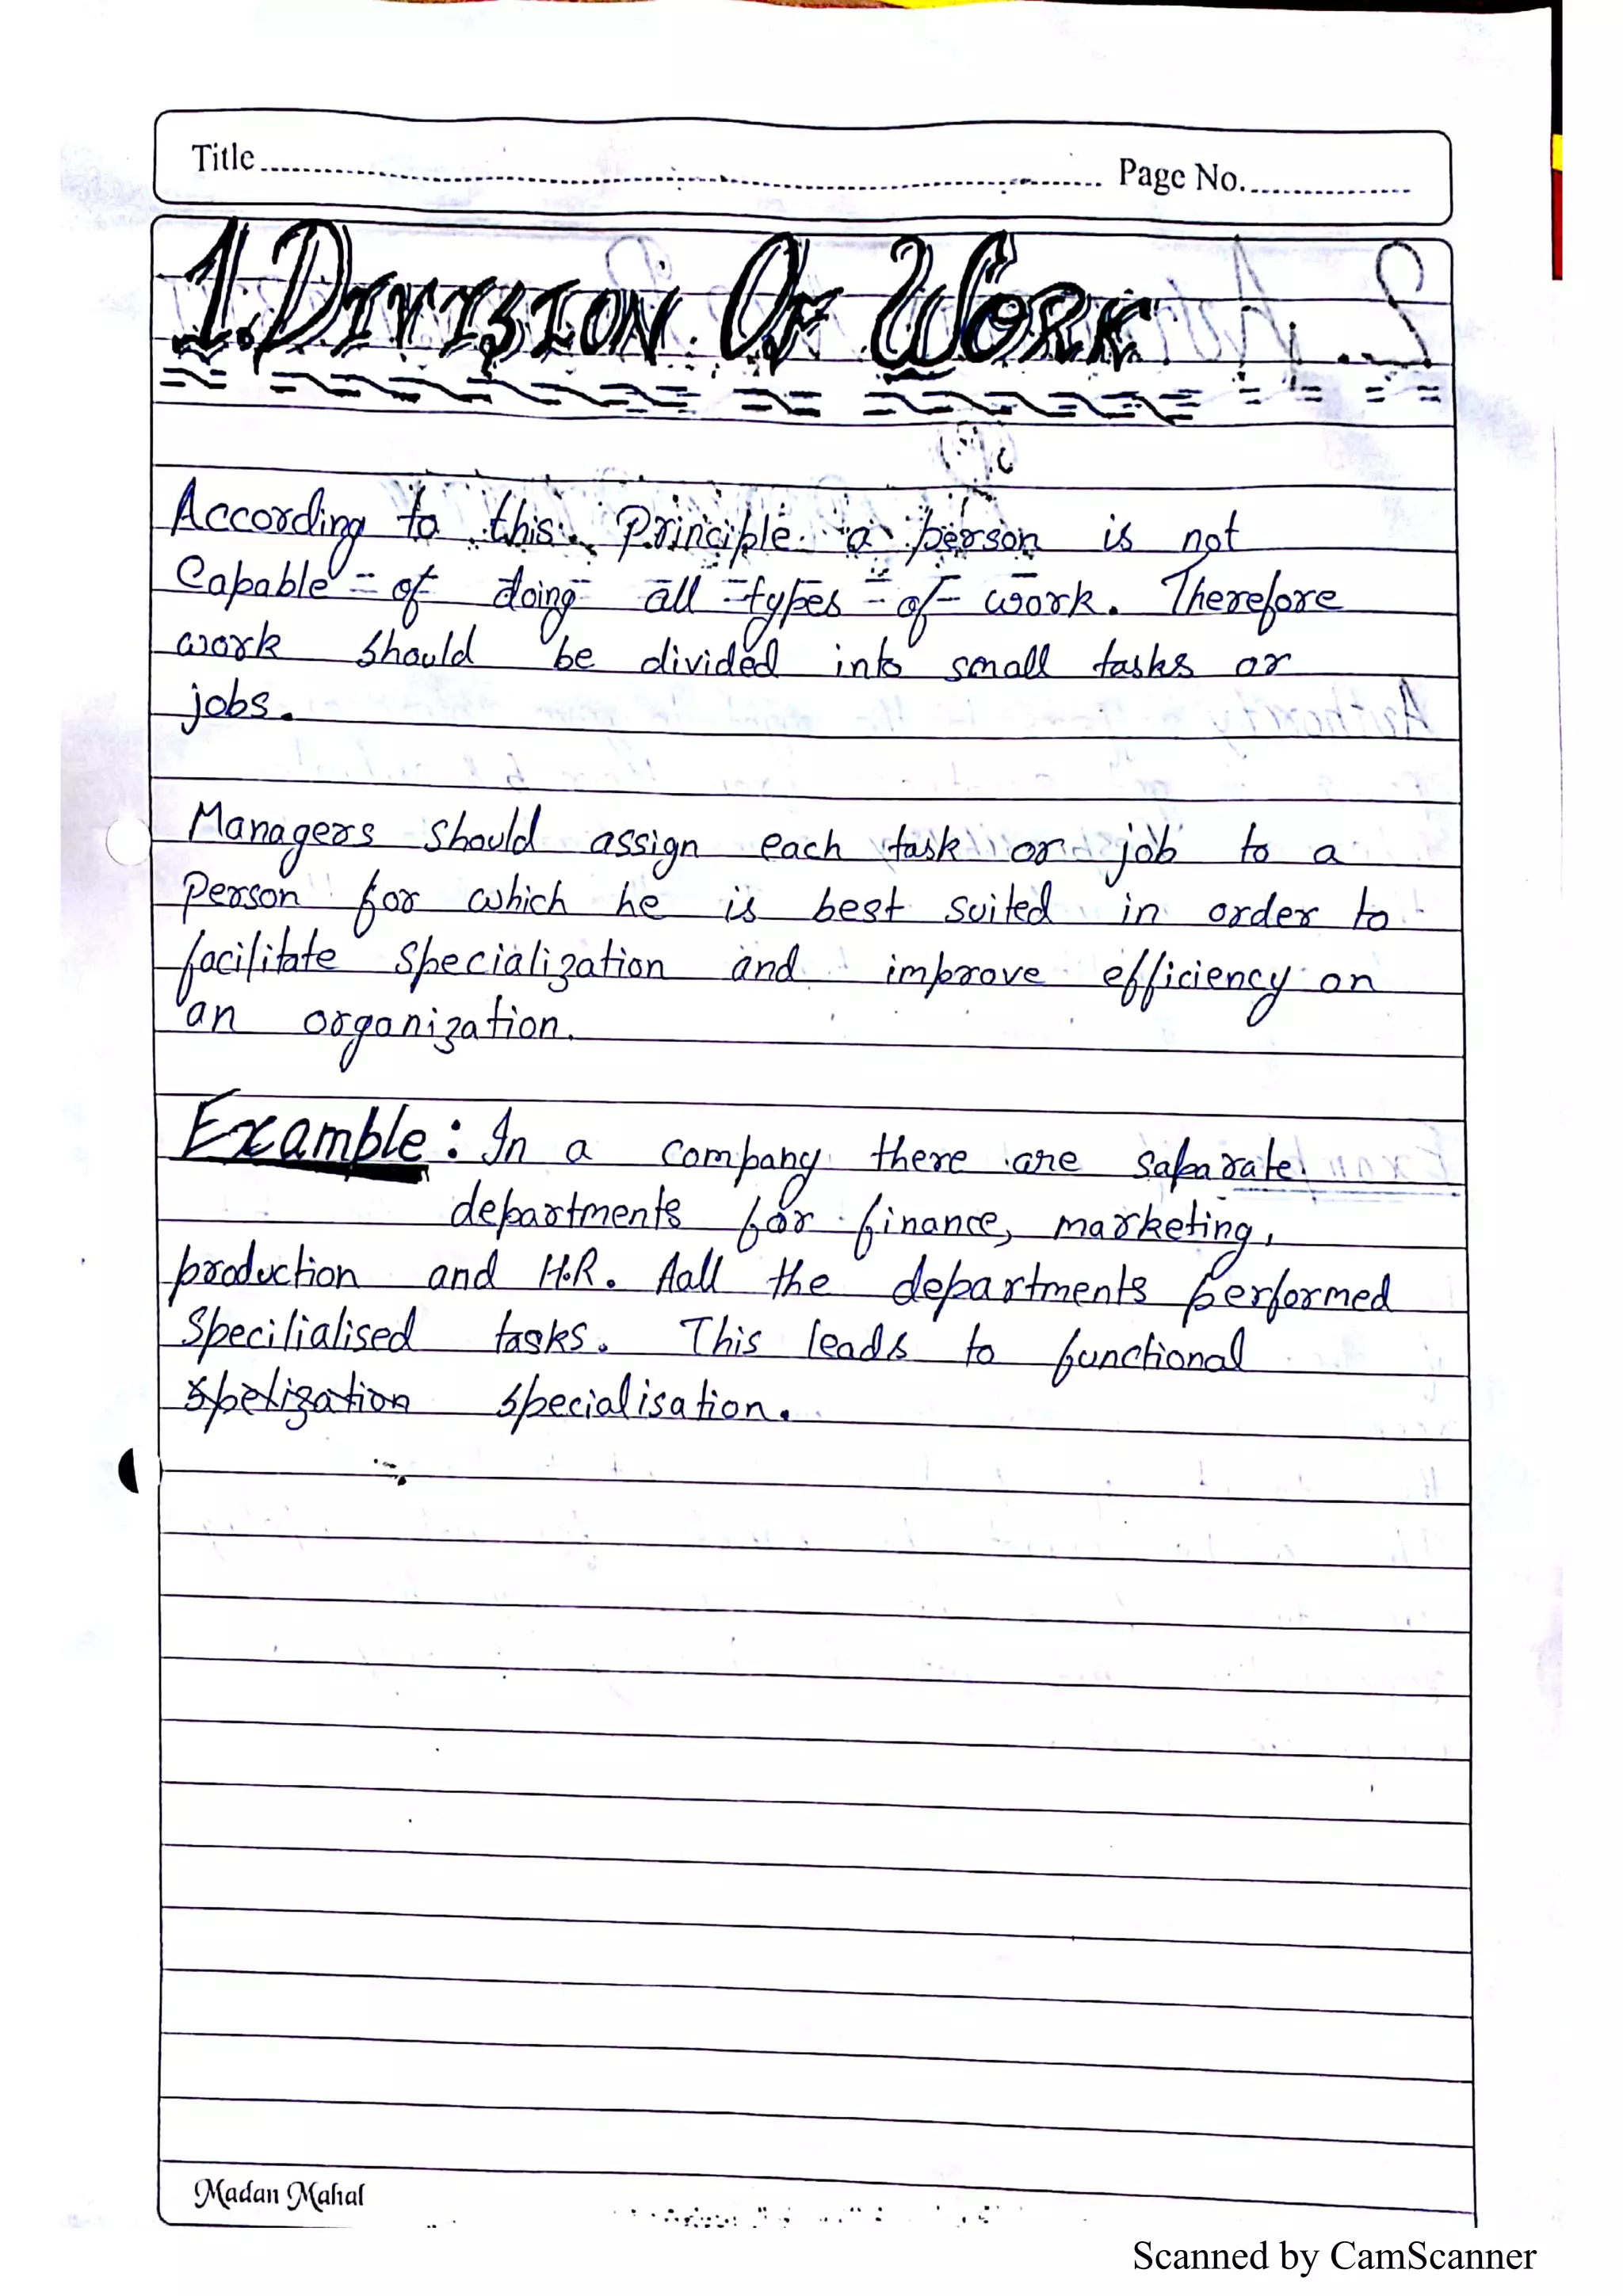 Title
Page No.
1. DIVISION OF WORK
According to this Principle a person is not
Capable of doing all types of work. Therefore
work should be divided into small tasks or
jobs.
Managers should assign each task or job to a
Person for which he is best suited in order to
facilitate specialization and improve efficiency on
an organization.
Example : In a company there are saparate
departments for finance, marketing,
production and H.R. Aall the departments performed
Specilialised tasks. This leads to functional
spelization specialisation.
Madan Mahal
Scanned by CamScanner